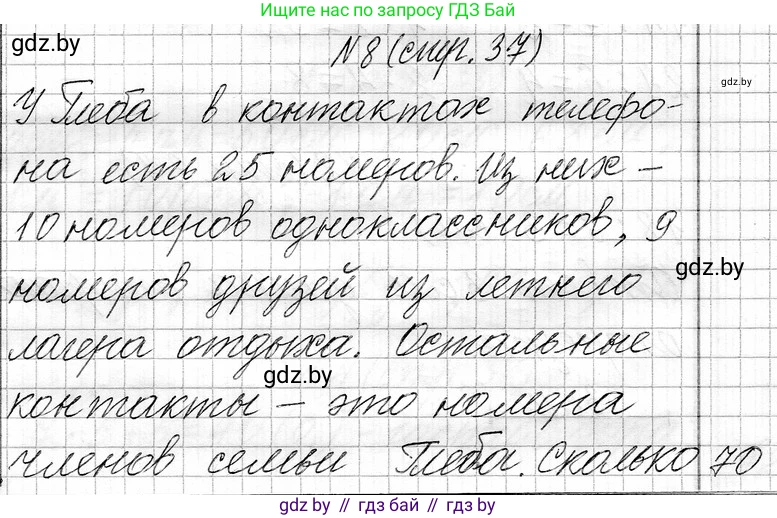 Ищите нас по запросу ГДЗ Бай
gdz.by
N8 (стр. 37)
gdz.by
У Глеба в контактах телефо-
на есть 25 номеров. Из них -
10 номеров одноклассников, 9
gdz.by
номеров друзей из летнего
лагера отдыха. Остальные
gdz.by
контакты - это номера
членов семьи Глеба. Сколько
70
gdz.by // гдз бай // gdz.by